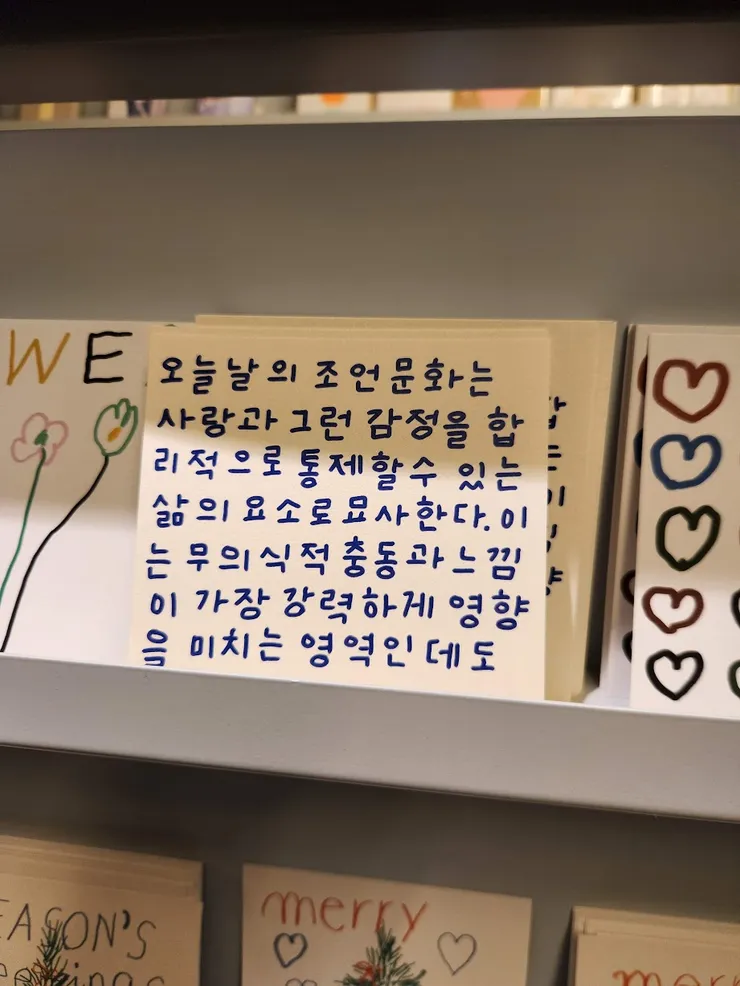 WE
오늘날의 조언문화는
사랑과 그런 감정을 합
리적으로 통제할 수 있는
삶의 요소로 묘사한다. 이
는 무의식적 충동과 느낌
이 가장 강력하게 영향
을 미치는 영역인데도
EASON'S
merry